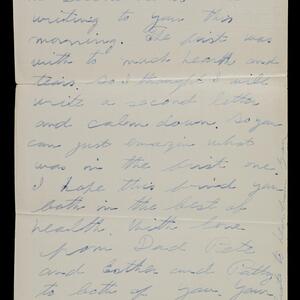 writing to you this
morning. The first was
with to much heath and
tears. So I thought I will
write a second letter
and calem down. So you
can just emagin what
was in the first one.
I hope this find you
both in the best of
health. With love
from Dad Pete
and Esther and Patty
to both of you. Your